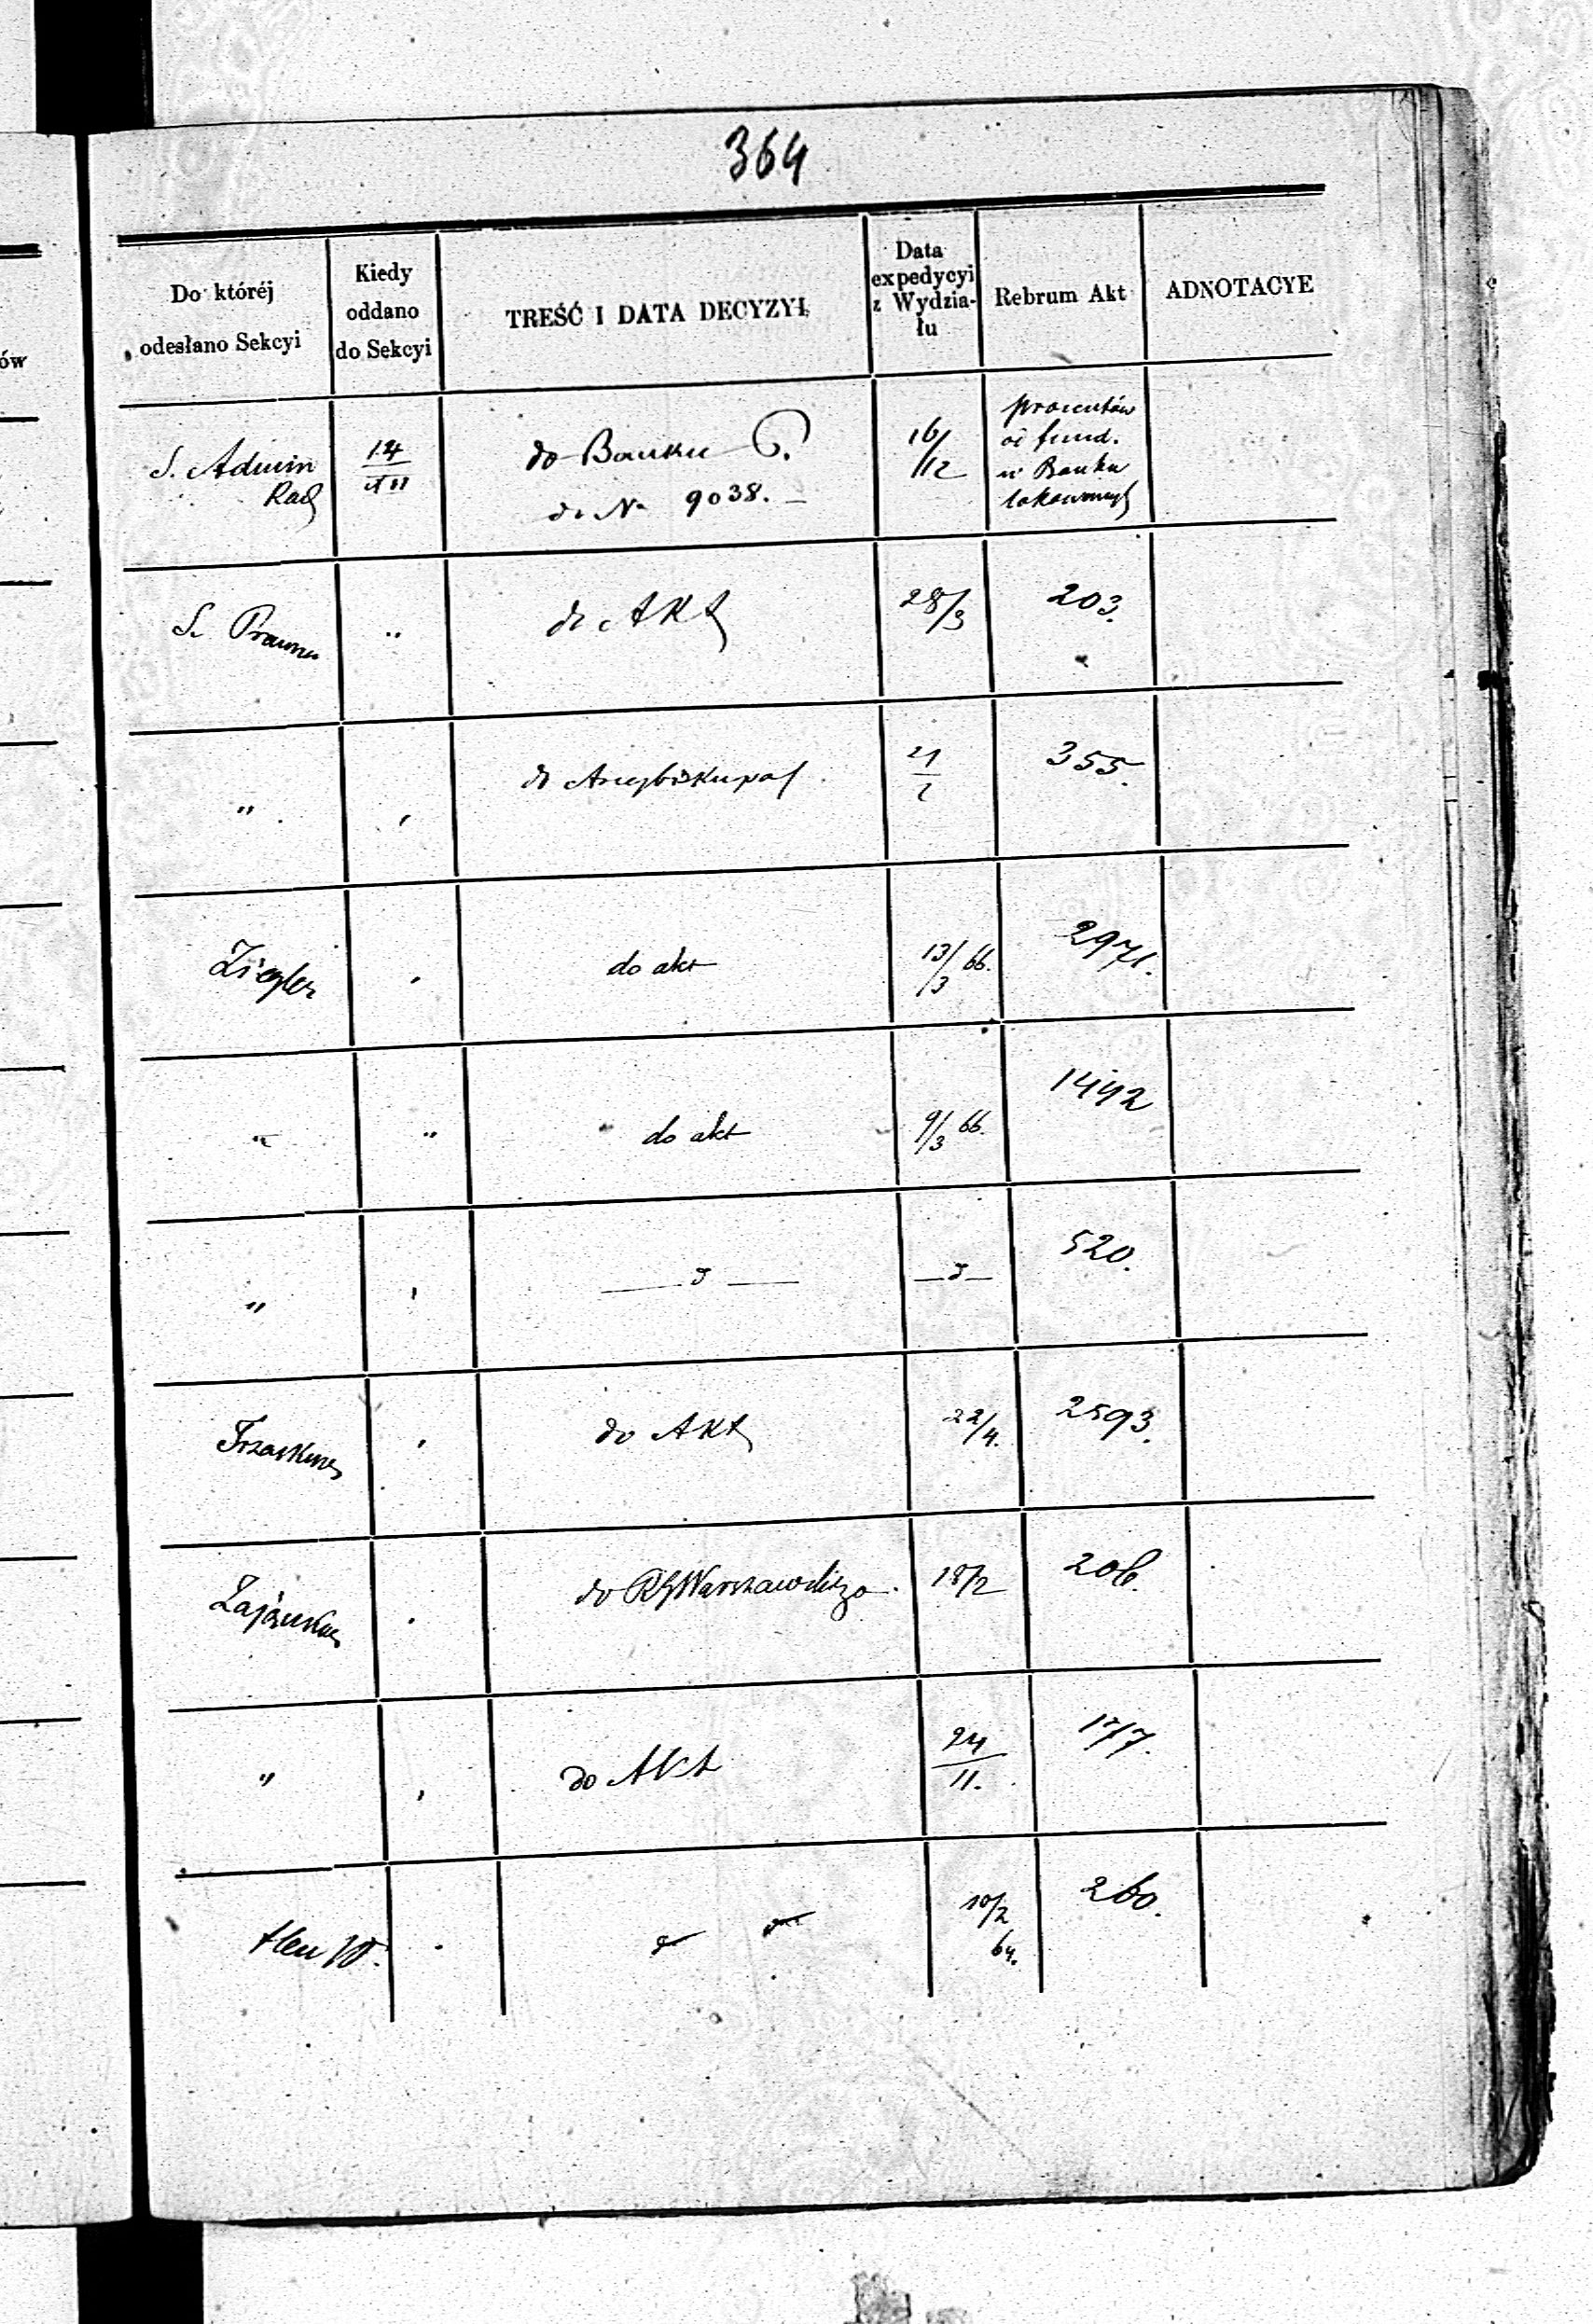 364
Do któréj odesłano Sekcyi
Kiedy oddano do Sekcyi
TREŚĆ I DATA DECYZYI,
Data expedycyi z Wydziału
Rebrum Akt
ADNOTACYE
ów
S. Admin
Rad
14/XII
do Banku P.
do N 9038. —
16/12
procentów
od fund.
w Banku
lokowanych
S. Prawna
"
do Akt
28/3
203.
"
"
do Arcybiskupa
21/2
355.
Ziegler
"
do akt
13/3 66.
2971.
"
"
do akt
9/3 66.
1492
"
"
— d —
— d —
520.
"
do Akt
22/4.
2593.
do RGWarszawskiego
18/2
206.
"
"
do Akt
24/11.
177.
d d
10/2
64.
260.